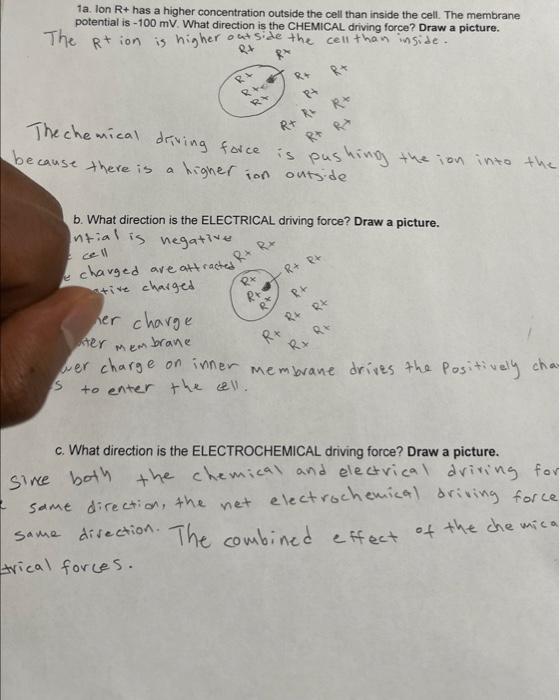 1a. Ion R+ has a higher concentration outside the cell than inside the cell. The membrane
potential is -100 mV. What direction is the CHEMICAL driving force? Draw a picture.
The R+ ion is higher outside the cell than inside.
R+ R+
R+ R+ R+
R+ R+
R+ R+ R+
R+ R+ R+
The chemical driving force is pushing the ion into the
because there is a higher ion outside
b. What direction is the ELECTRICAL driving force? Draw a picture.
ntial is negative
cell
charged are attracted
charged
R+ R+
R+ R+ R+
R+ R+
R+ R+ R+
R+ R+ R+
ner charge
membrane
wer charge on inner membrane drives the Positively cha
s to enter the cell.
c. What direction is the ELECTROCHEMICAL driving force? Draw a picture.
Since both the chemical and electrical driving for
same direction, the net electrochemical driving force
same direction. The combined effect of the chemica
trical forces.